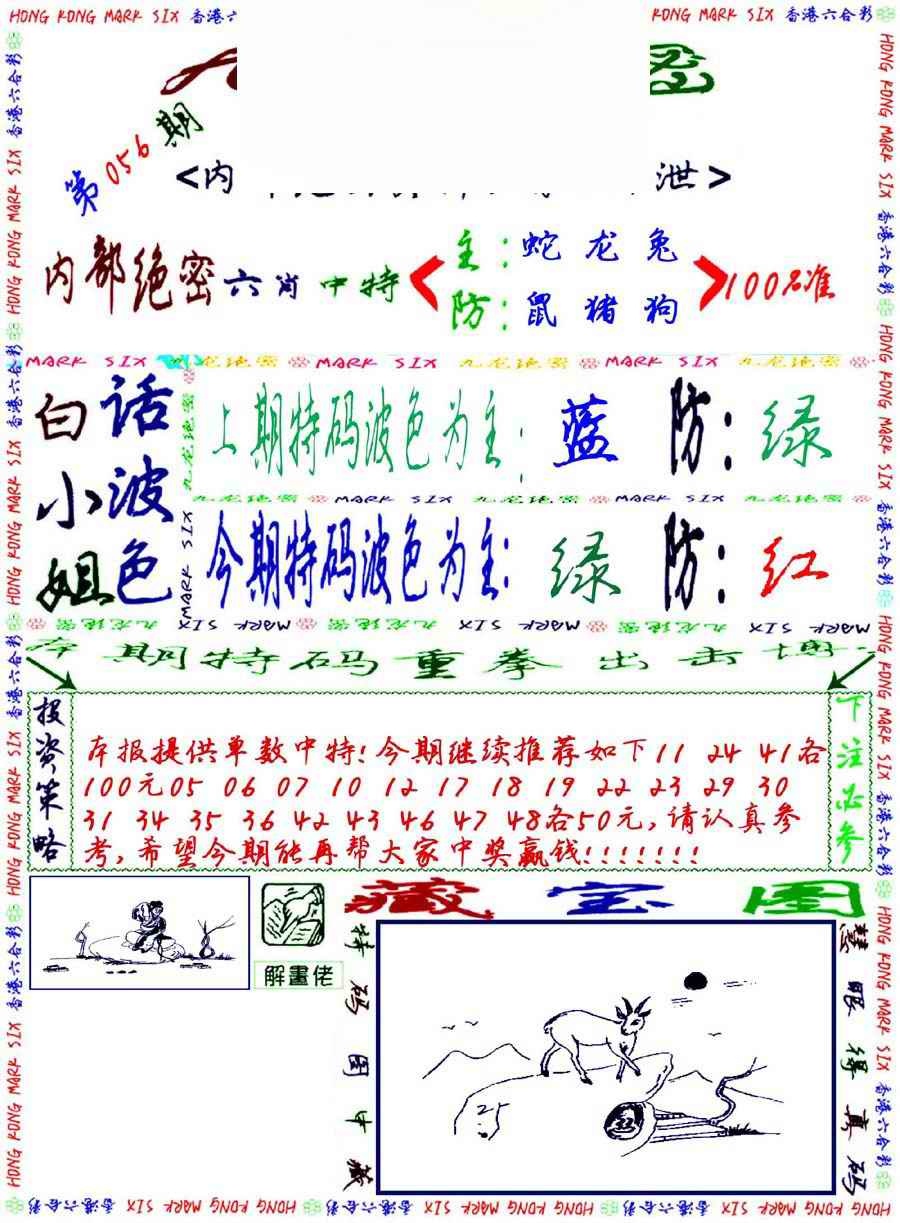 HONG KONG MARK SIX 香港六
KONG MARK SIX 香港六合彩
第056期
<内
泄>
内部绝密六肖中特
主:蛇 龙 兔
防:鼠 猪 狗
100%准
MARK SIX 九龙绝密 MARK SIX 九龙绝密 MARK SIX 九龙绝密
白话
小波
姐色
上期特码波色为主: 蓝 防:绿
九龙绝密 MARK SIX 九龙绝密 MARK SIX 九龙绝密
今期特码波色为主: 绿 防:红
MARK SIX 九龙绝密 MARK SIX 九龙绝密 MARK SIX 九龙绝密 MARK SIX
本期特码重拳出击
投资策略
本报提供单数中特!今期继续推荐如下11 24 41各
100元05 06 07 10 12 17 18 19 22 23 29 30
31 34 35 36 42 43 46 47 48各50元,请认真参
考,希望今期能再帮大家中奖赢钱!!!!!!!
下注必参
解畫佬
藏宝图
特码图中藏
25
慧眼得真码
HONG KONG MARK SIX 香港六合彩